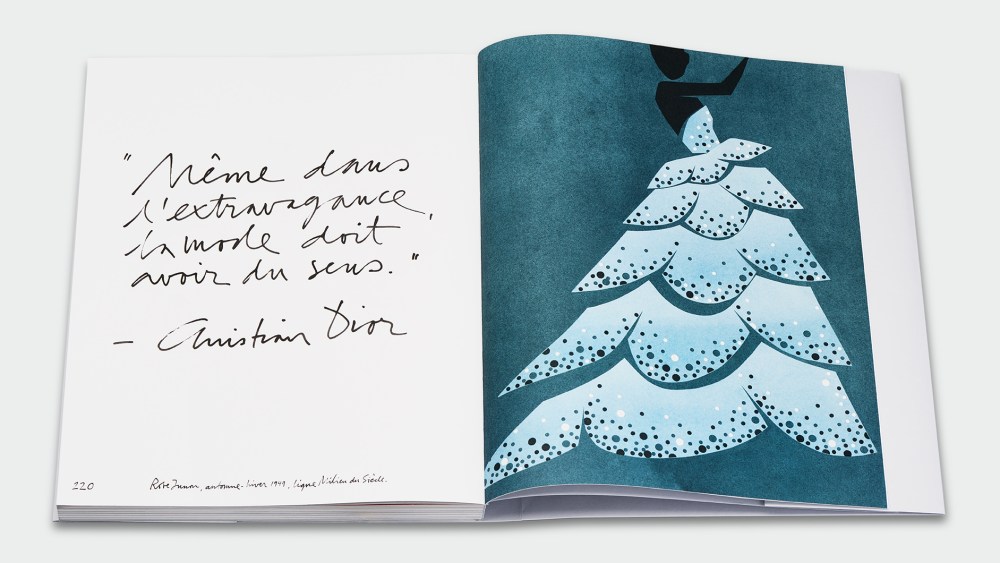 "Même dans
l'extravagance,
la mode doit
avoir du sens."
— Christian Dior
220 Robe Junon, automne-hiver 1949, ligne Milieu du Siècle.